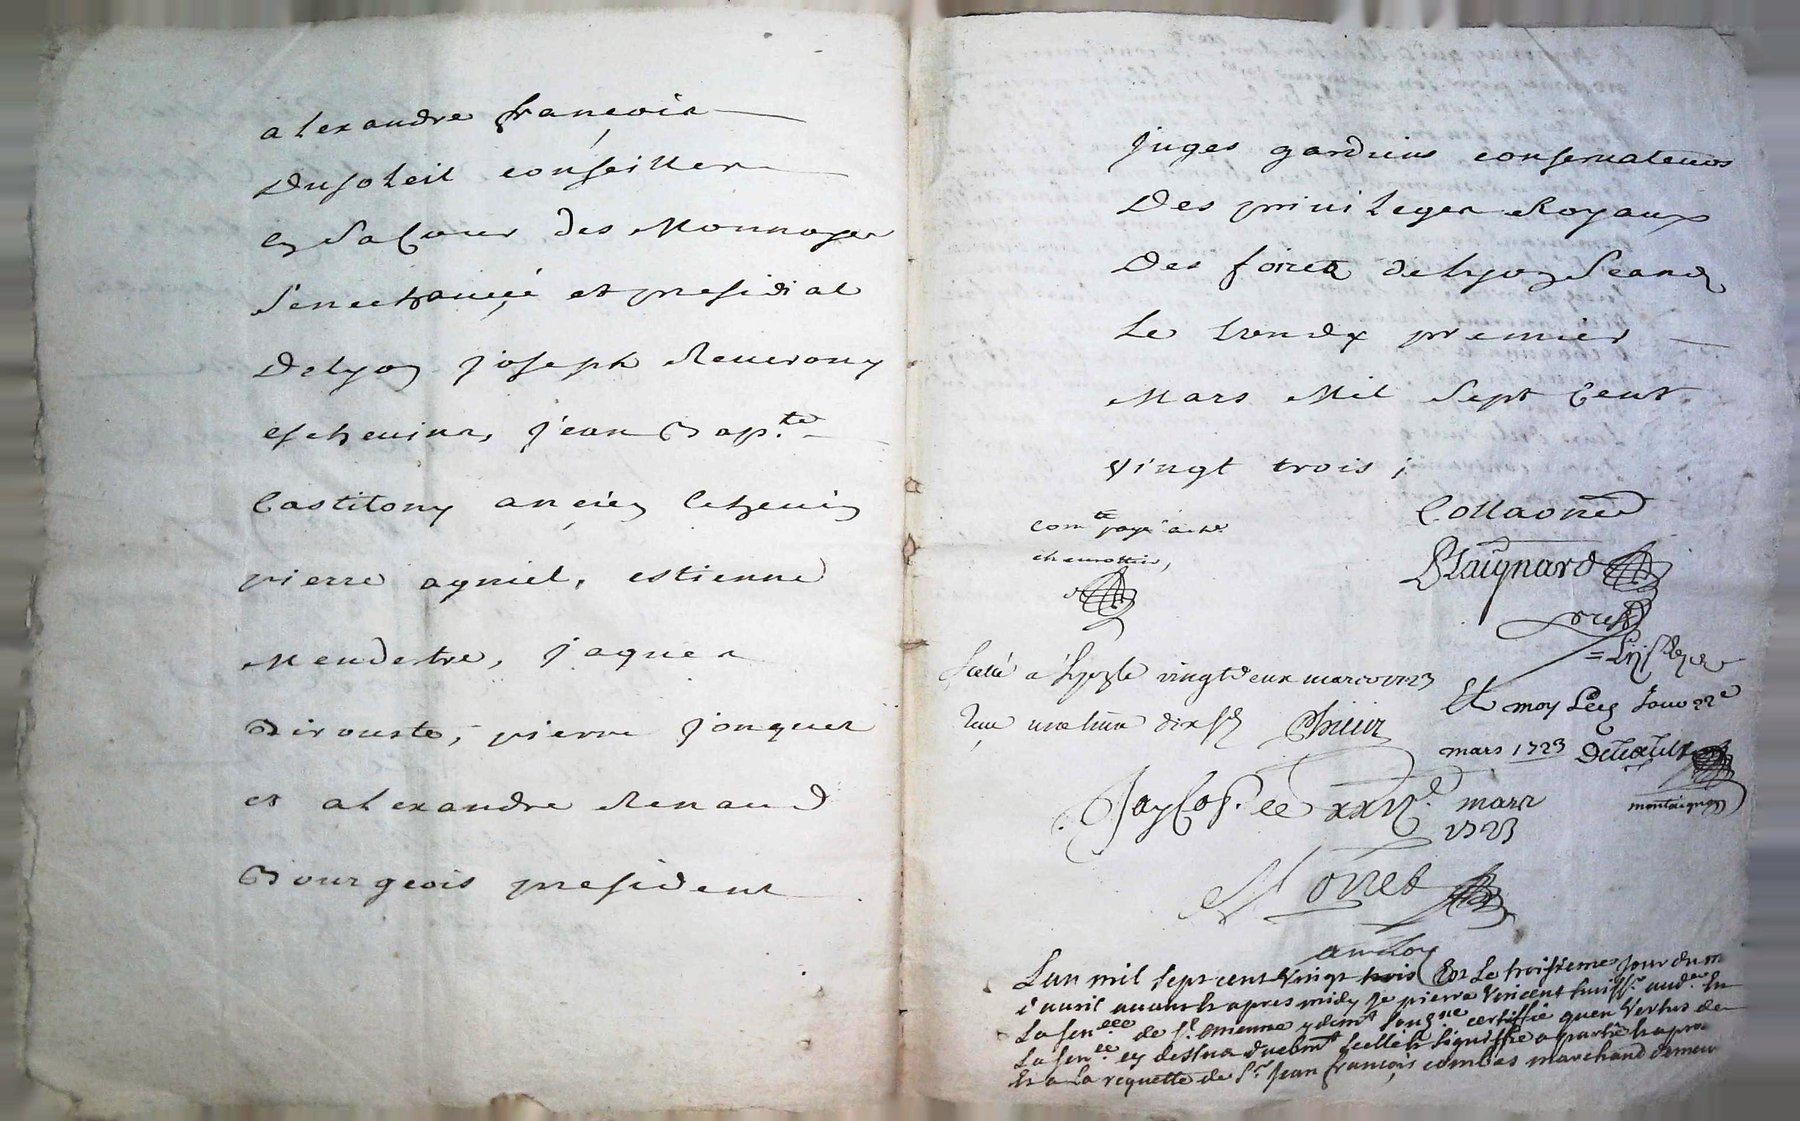 alexandre françois
Dusoleil conseiller
en La Cour des Monnoyes
Senechaucée et presidial
Delyon joseph Reverony
eschevins, jean Bap.te
Castilony ancien Echevin
pierre agniel, estienne
Mendestre, jaques
Birouste, pierre jonquet
et alexandre Renaud
Bourgeois president
juges gardiens conservateurs
Des privileges Royaux
Des foires delyon Seand
Le Lundy premier
Mars Mil Sept Cent
vingt trois ;
Collaonné
Plaignard
Com.te payé a m.e
Scellé a Lyon le vingt deux mars 1723
Et moy
mars 1723
montaignon
le XXIV.e mars
1723
Moret
Lan mil sept cent vingt trois Et Le troisieme Jour du m
d'avril avant et apres midy Je pierre Vincent huiss.r aud.er En
La Sen.cee de S.t Etienne y dem.t Soub.ne certiffie quen Vertus de
La Sen.ce cy dessus duebm.t scellée signiffié a partie
Et a La requette de S.r Jean François combes marchand demeu